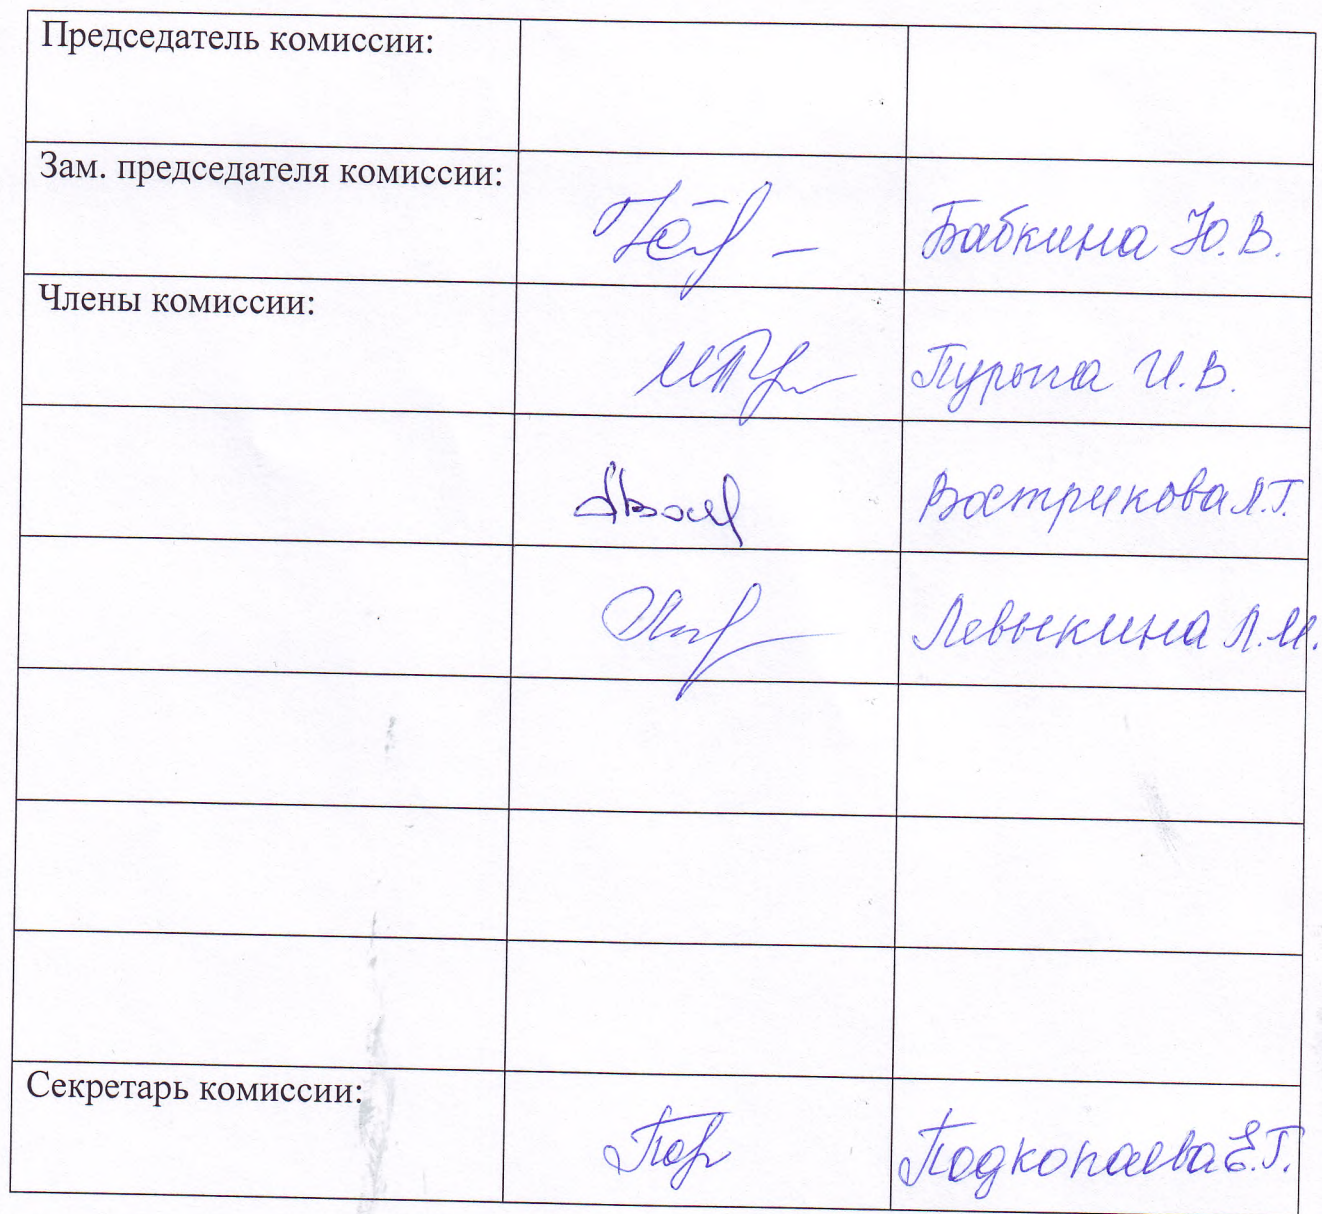 Председатель комиссии:
Зам. председателя комиссии:
Бабкина Ю.В.
Члены комиссии:
И.В.
Вострикова Л.Г.
Левыкина Л.М.
Секретарь комиссии:
Подкопаева Е.Г.